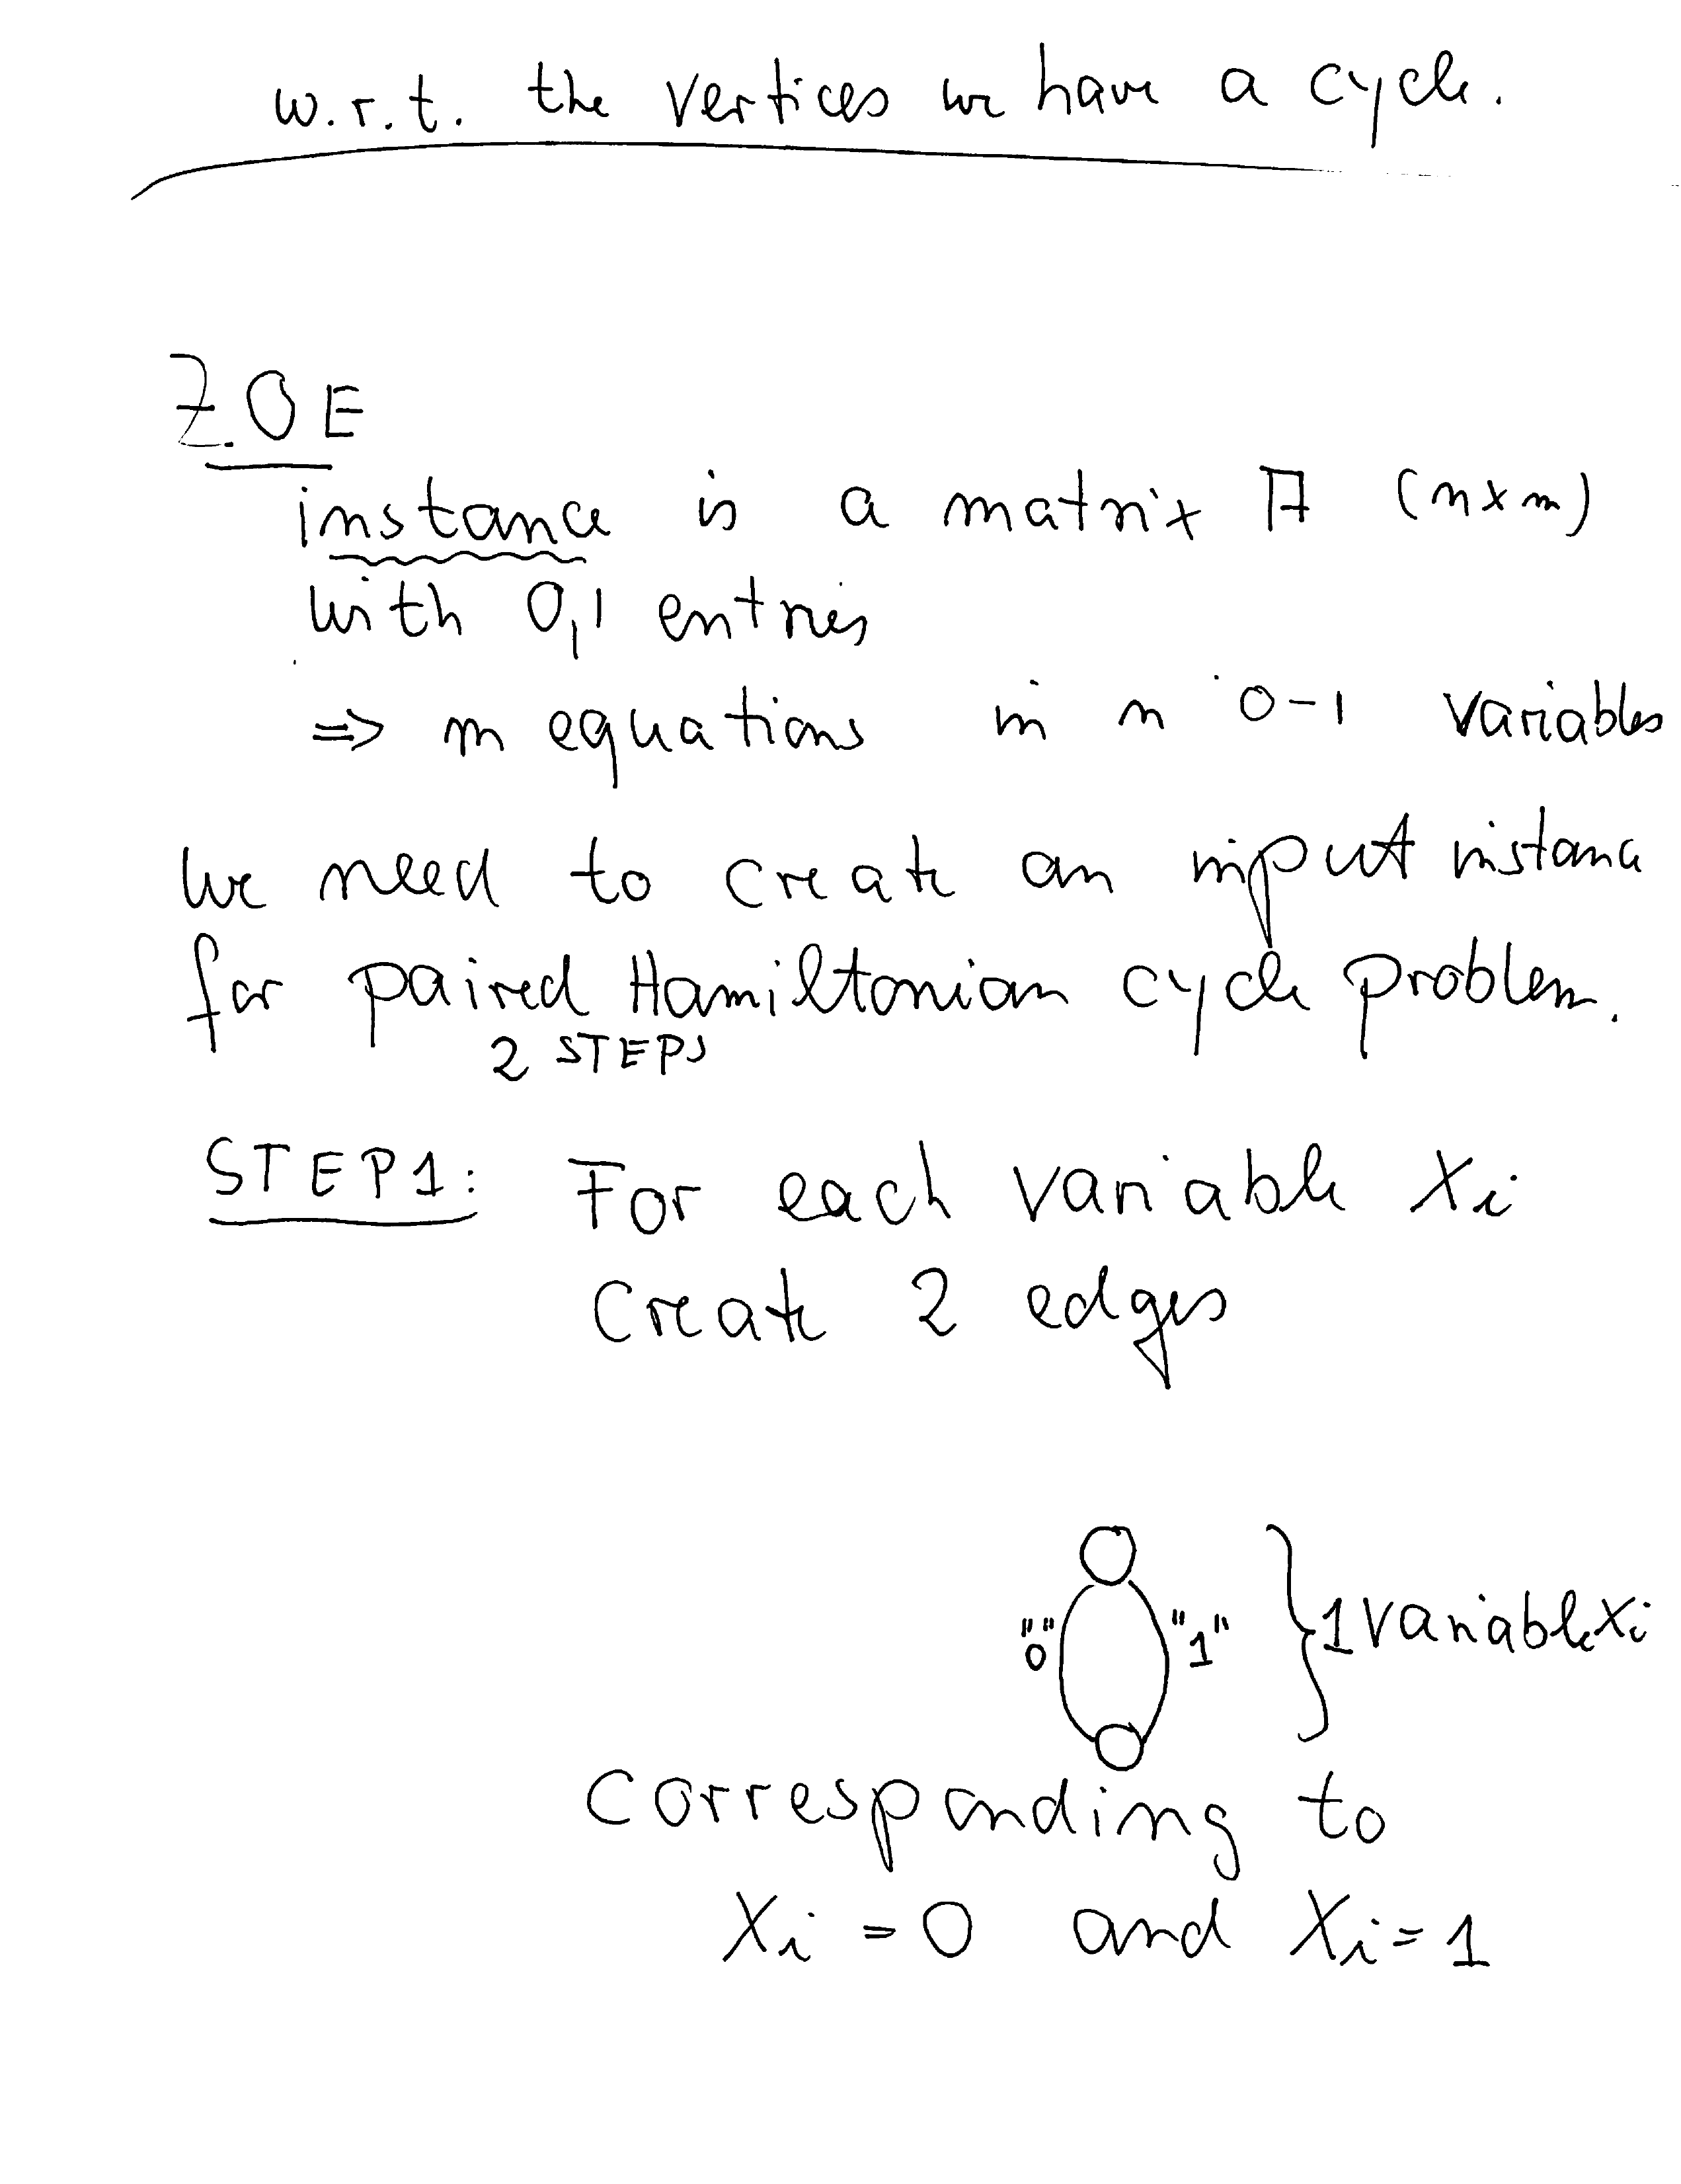 w.r.t. the vertices we have a cycle.
ZOE
instance is a matrix A (n x m)
with 0,1 entries
=> m equations in n 0-1 variables
We need to create an input instance
for paired Hamiltonian cycle problem.
2 STEPS
STEP1: For each variable Xi
Create 2 edges
"0" "1" } 1 variable Xi
Corresponding to
Xi = 0 and Xi = 1